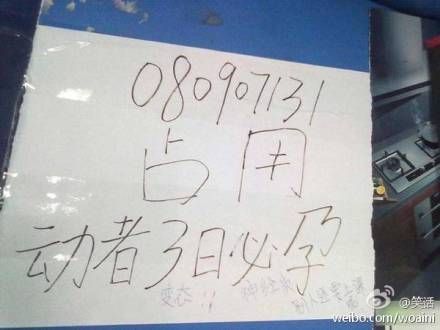 080907131
占用
动者3日必孕
变态!!
神经病
@笑活
weibo.com/woaini